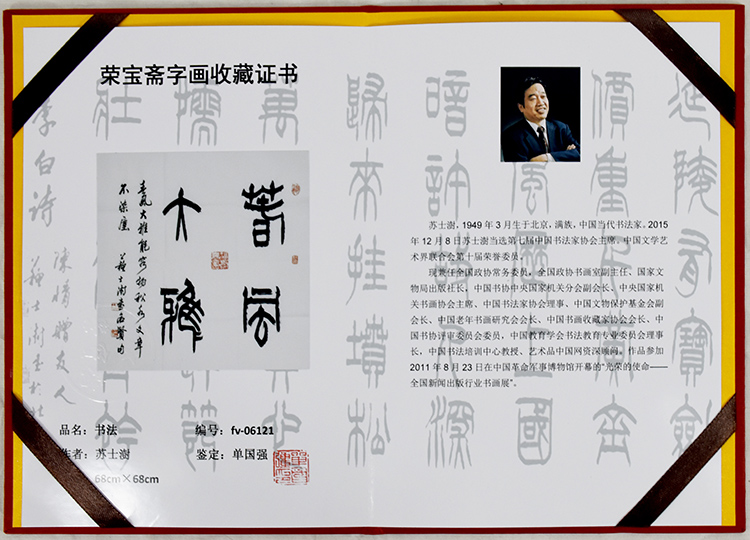 荣宝斋字画收藏证书
春风
大雅
春风大雅能容物秋水文章
不染尘
苏士澍，1949 年 3 月生于北京，满族，中国当代书法家。2015
年 12 月 8 日苏士澍当选第七届中国书法家协会主席。中国文学艺
术界联合会第十届荣誉委员。
现兼任全国政协常务委员，全国政协书画室副主任、国家文
物局出版社社长，中国书协中央国家机关分会副会长、中央国家机
关书画协会主席、中国书法家协会理事、中国文物保护基金会副
会长、中国老年书画研究会会长、中国书画收藏家协会会长、中
国书协评审委员会委员，中国教育学会书法教育专业委员会理事
长，中国书法培训中心教授、艺术品中国网资深顾问。作品参加
2011 年 8 月 23 日在中国革命军事博物馆开幕的“光荣的使命——
全国新闻出版行业书画展”。
品名：书法 编号：fv-06121
作者：苏士澍 鉴定：单国强
68cm×68cm
延陵有寶劍
價重
風 上國
暗許 深
歸來挂墳松
萬
李白诗
陳情贈友人